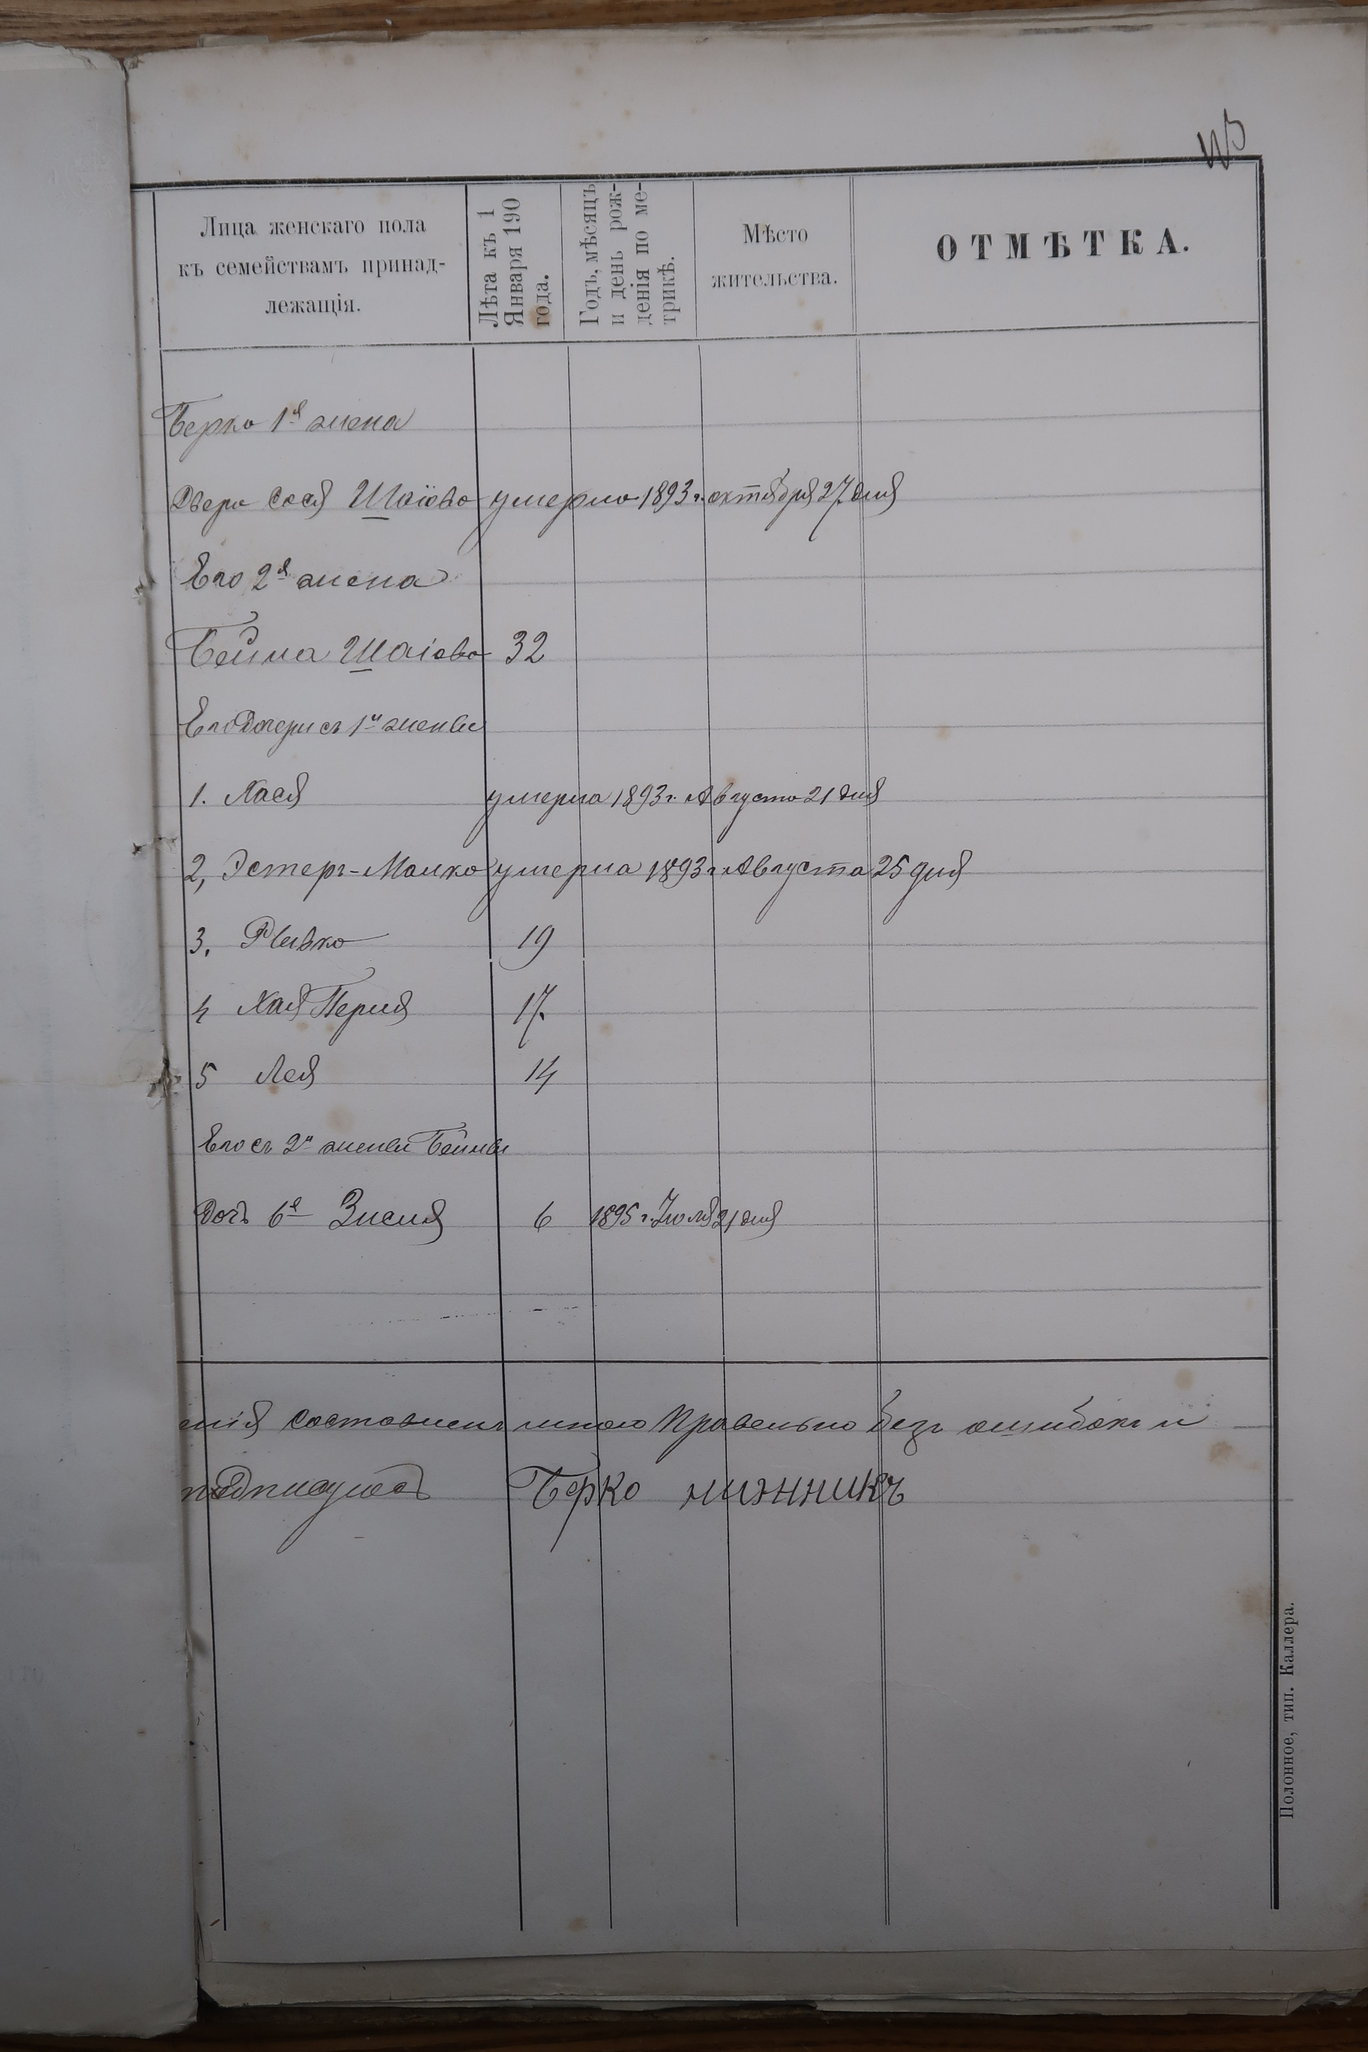 Лица женскаго пола
къ семействамъ принад-
лежащія.
Лѣта къ 1
Января 190
года.
Годъ, мѣсяцъ
и день рож-
денія по ме-
трикѣ.
Мѣсто
жительства.
ОТМѢТКА.
Берко 1я жена
Двера Сося Шаіова умерла 1893 г. октября 27 дня
Его 2я жена
Бейла Шаіова 32
Его Дочери съ 1й жены
1. Хася умерла 1893 г. Августа 21 дня
2, Эстеръ-Малка умерла 1893 г. Августа 25 дня
3. Ривка 19
4 Хая Перля 17.
5 Лея 14
Его съ 2й жены Бейлы
Дочъ 6я Зисля 6 1895 г. Июля 21 дня
нія составленъ мною правельно безъ ошибокъ и
подписуюсъ Берко
Полонное, тип. Каллера.